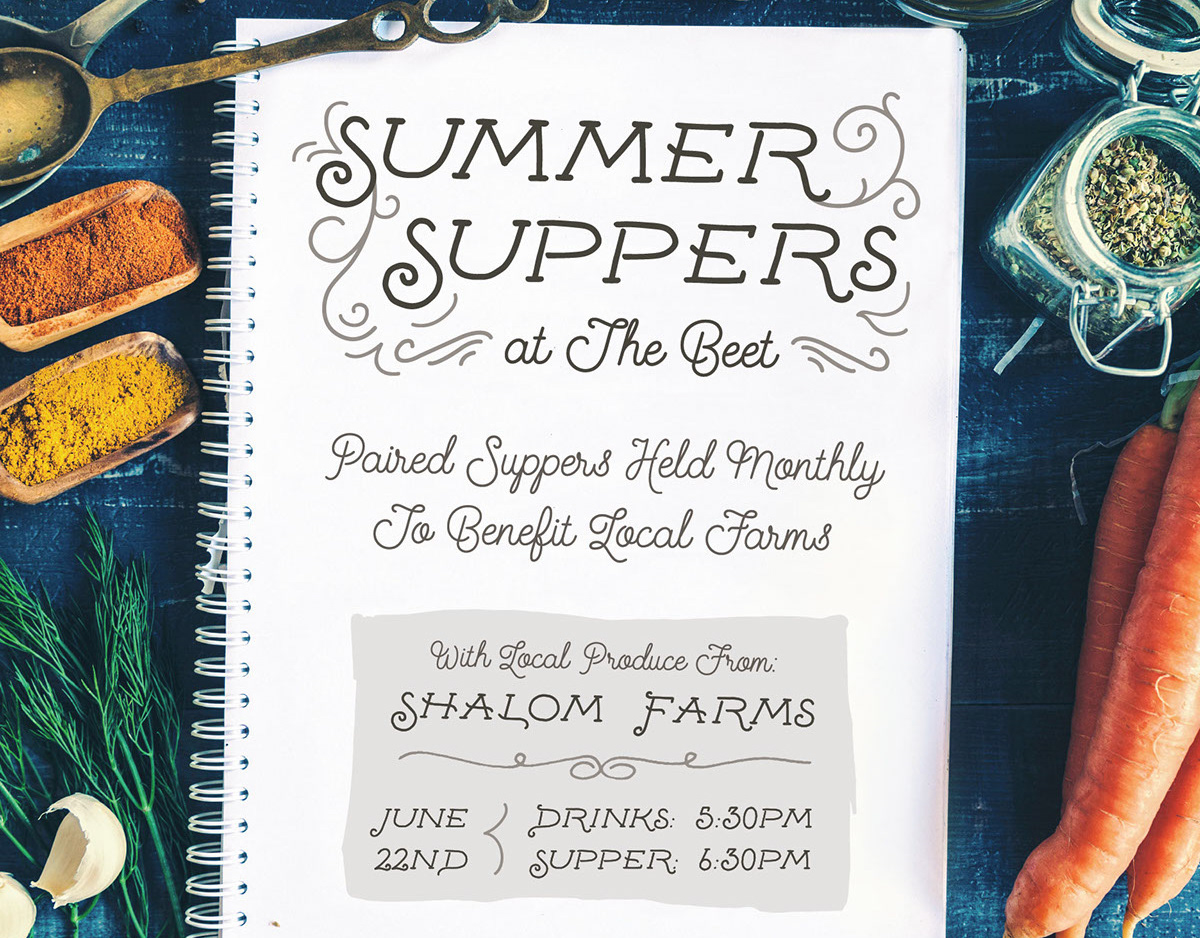 SUMMER
SUPPERS
at The Beet
Paired Suppers Held Monthly
To Benefit Local Farms
With Local Produce From:
SHALOM FARMS
JUNE DRINKS: 5:30PM
22ND SUPPER: 6:30PM